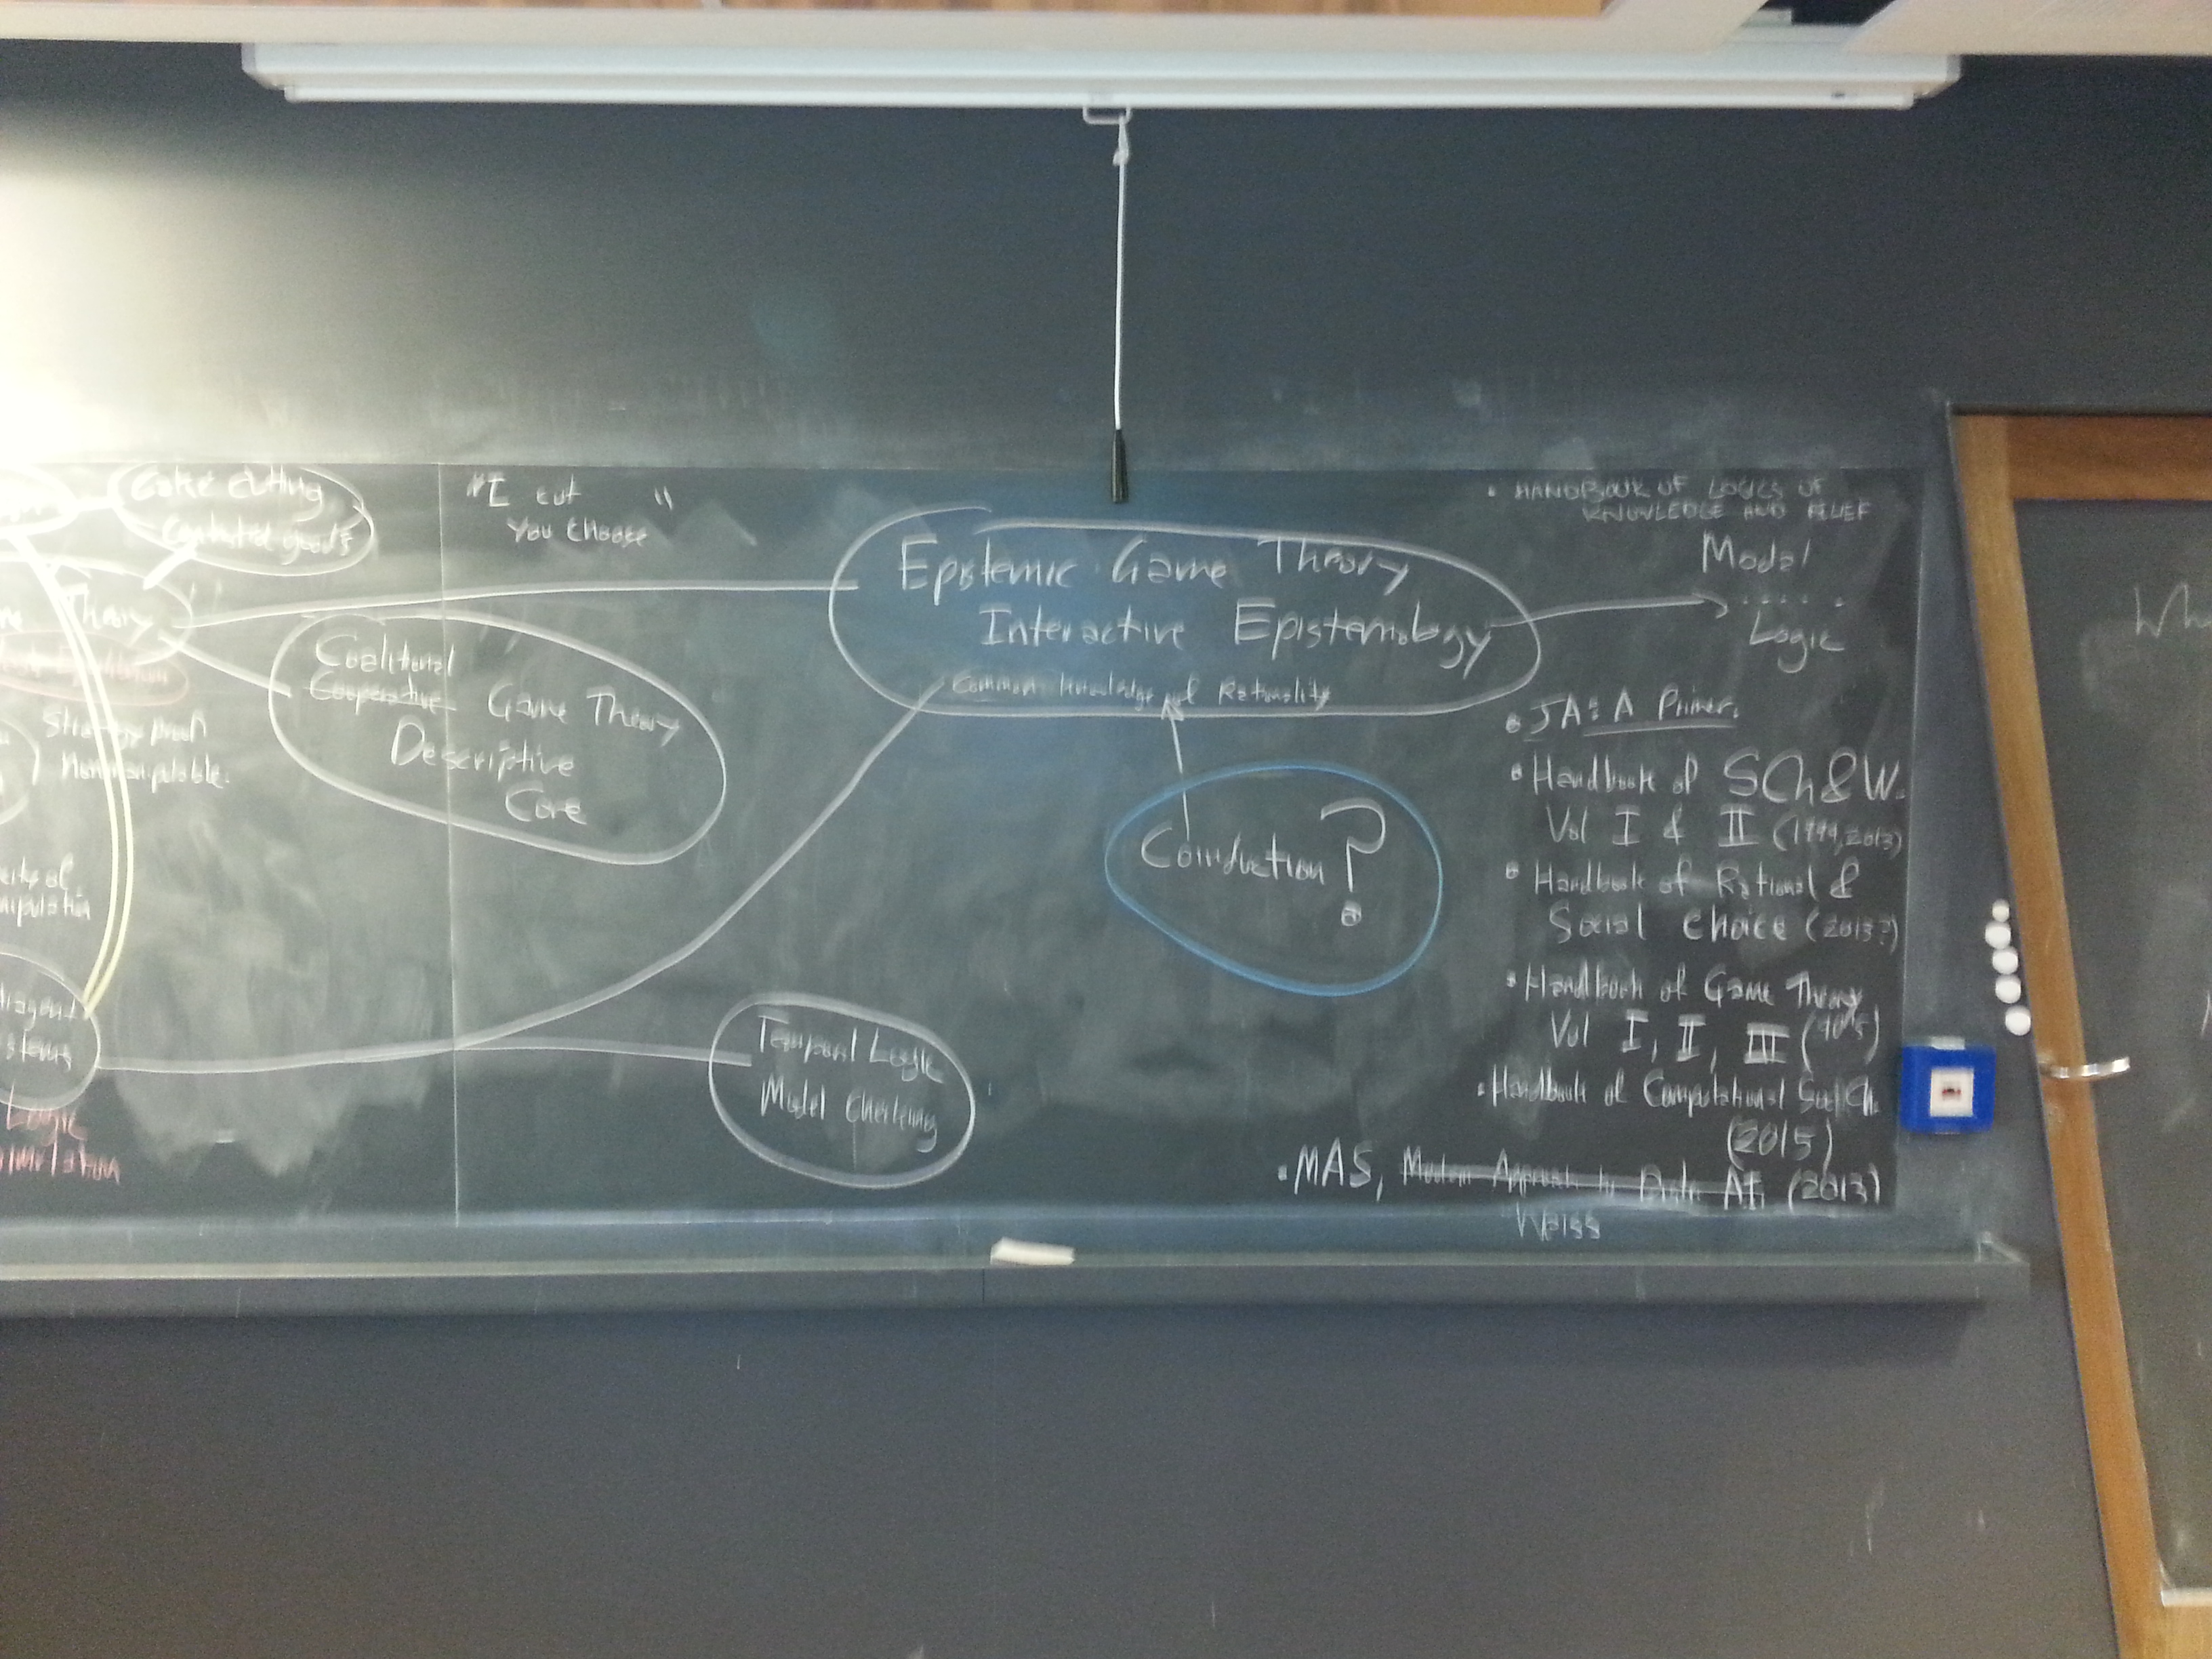 Cake cutting
Contested goods
"I cut
You choose"
Theory
Strategy proof
Nonmanipulable.
Coalitional
Cooperative Game Theory
Descriptive
Core
Epistemic Game Theory
Interactive Epistemology
Common knowledge of Rationality
Coinduction ?
Temporal Logic
Model Checking
Logic
• HANDBOOK OF LOGICS OF
KNOWLEDGE AND BELIEF
Modal
.....
Logic
• JA: A Primer.
• Handbook of SCh&W.
Vol I & II (1999, 2013)
• Handbook of Rational &
Social Choice (2013?)
• Handbook of Game Theory
Vol I, II, III (90's)
• Handbook of Computational Soc Ch.
(2015)
• MAS, Modern Approach to AI (2013)
Weiss